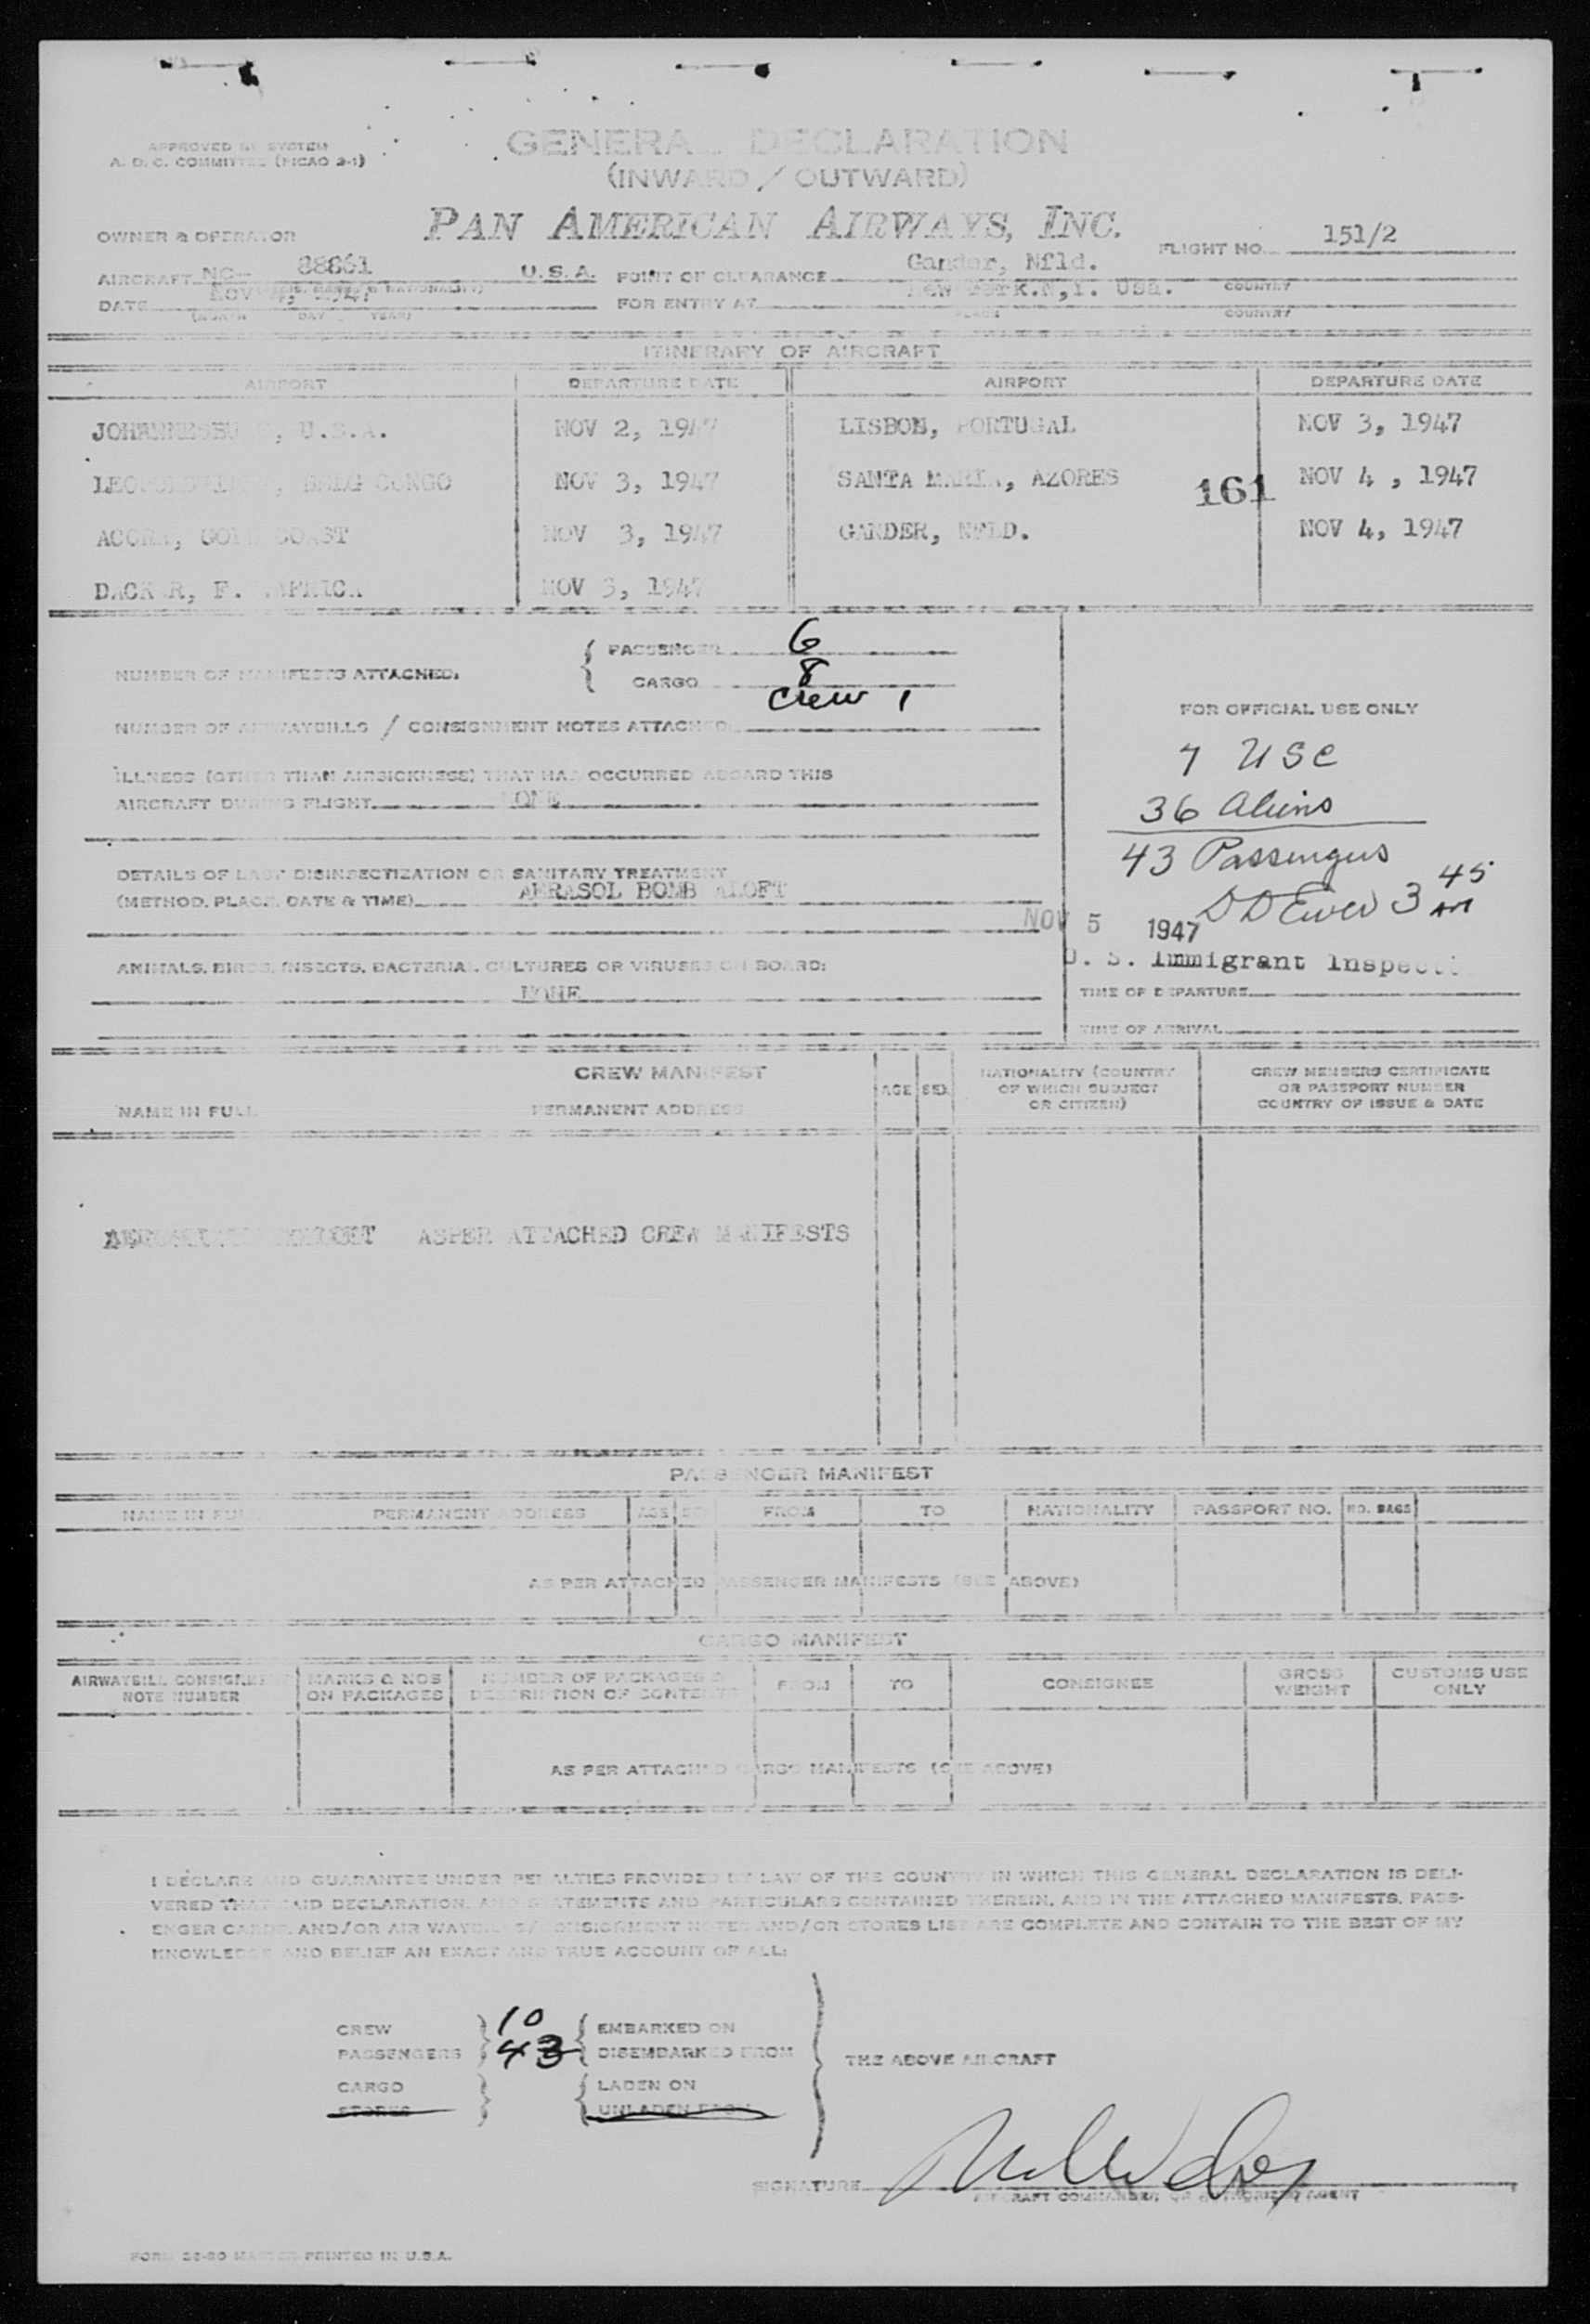 APPROVED SYSTEM
A. D. C. COMMITTEE (PICAO 2-1)
GENERAL DECLARATION
(INWARD / OUTWARD)
OWNER & OPERATOR PAN AMERICAN AIRWAYS, INC. FLIGHT NO. 151/2
AIRCRAFT NC- 88861 U.S.A. POINT OF CLEARANCE Gander, Nfld. COUNTRY
DATE NOV 4, 1947 FOR ENTRY AT New York.N,Y. USa.
(MONTH DAY YEAR) PLACE COUNTRY
ITINERARY OF AIRCRAFT
AIRPORT DEPARTURE DATE AIRPORT DEPARTURE DATE
JOHANNESBURG, U.S.A. NOV 2, 1947 LISBON, PORTUGAL NOV 3, 1947
LEOPOLDVILLE, BELG CONGO NOV 3, 1947 SANTA MARIA, AZORES 161 NOV 4 , 1947
ACCRA, GOLD COAST NOV 3, 1947 GANDER, NFLD. NOV 4, 1947
DACKAR, F. AFRICA NOV 3, 1947
NUMBER OF MANIFESTS ATTACHED. PASSENGER 6
CARGO 8
Crew 1
NUMBER OF AIRWAYBILLS / CONSIGNMENT NOTES ATTACHED
ILLNESS (OTHER THAN AIRSICKNESS) THAT HAS OCCURRED ABOARD THIS
AIRCRAFT DURING FLIGHT NONE
DETAILS OF LAST DISINSECTIZATION OR SANITARY TREATMENT
(METHOD, PLACE, DATE & TIME) AERASOL BOMB ALOFT
ANIMALS, BIRDS, INSECTS, BACTERIAL CULTURES OR VIRUSES ON BOARD:
NONE
FOR OFFICIAL USE ONLY
7 USC
36 Aliens
43 Passengers
3 45 AM
NOV 5 1947
U. S. Immigrant Inspector
TIME OF DEPARTURE
TIME OF ARRIVAL
CREW MANIFEST
NAME IN FULL PERMANENT ADDRESS AGE SEX NATIONALITY (COUNTRY OF WHICH SUBJECT OR CITIZEN) CREW MEMBERS CERTIFICATE OR PASSPORT NUMBER COUNTRY OF ISSUE & DATE
ASPER ATTACHED CREW MANIFESTS
PASSENGER MANIFEST
NAME IN FULL PERMANENT ADDRESS AGE SEX FROM TO NATIONALITY PASSPORT NO. NO. BAGS
AS PER ATTACHED PASSENGER MANIFESTS (SEE ABOVE)
CARGO MANIFEST
AIRWAYBILL CONSIGNMENT NOTE NUMBER MARKS & NOS ON PACKAGES NUMBER OF PACKAGES & DESCRIPTION OF CONTENTS FROM TO CONSIGNEE GROSS WEIGHT CUSTOMS USE ONLY
AS PER ATTACHED CARGO MANIFESTS (SEE ABOVE)
I DECLARE AND GUARANTEE UNDER PENALTIES PROVIDED BY LAW OF THE COUNTRY IN WHICH THIS GENERAL DECLARATION IS DELI-
VERED THAT SAID DECLARATION, AND STATEMENTS AND PARTICULARS CONTAINED THEREIN, AND IN THE ATTACHED MANIFESTS, PASS-
ENGER CARDS, AND/OR AIR WAYBILLS/ CONSIGNMENT NOTES AND/OR STORES LIST ARE COMPLETE AND CONTAIN TO THE BEST OF MY
KNOWLEDGE AND BELIEF AN EXACT AND TRUE ACCOUNT OF ALL:
CREW 10 EMBARKED ON
PASSENGERS 43 DISEMBARKED FROM THE ABOVE AIRCRAFT
CARGO LADEN ON
STORES UNLADEN FROM
SIGNATURE
AIRCRAFT COMMANDER, OR AUTHORIZED AGENT
FORM 26-80 MASTER PRINTED IN U.S.A.